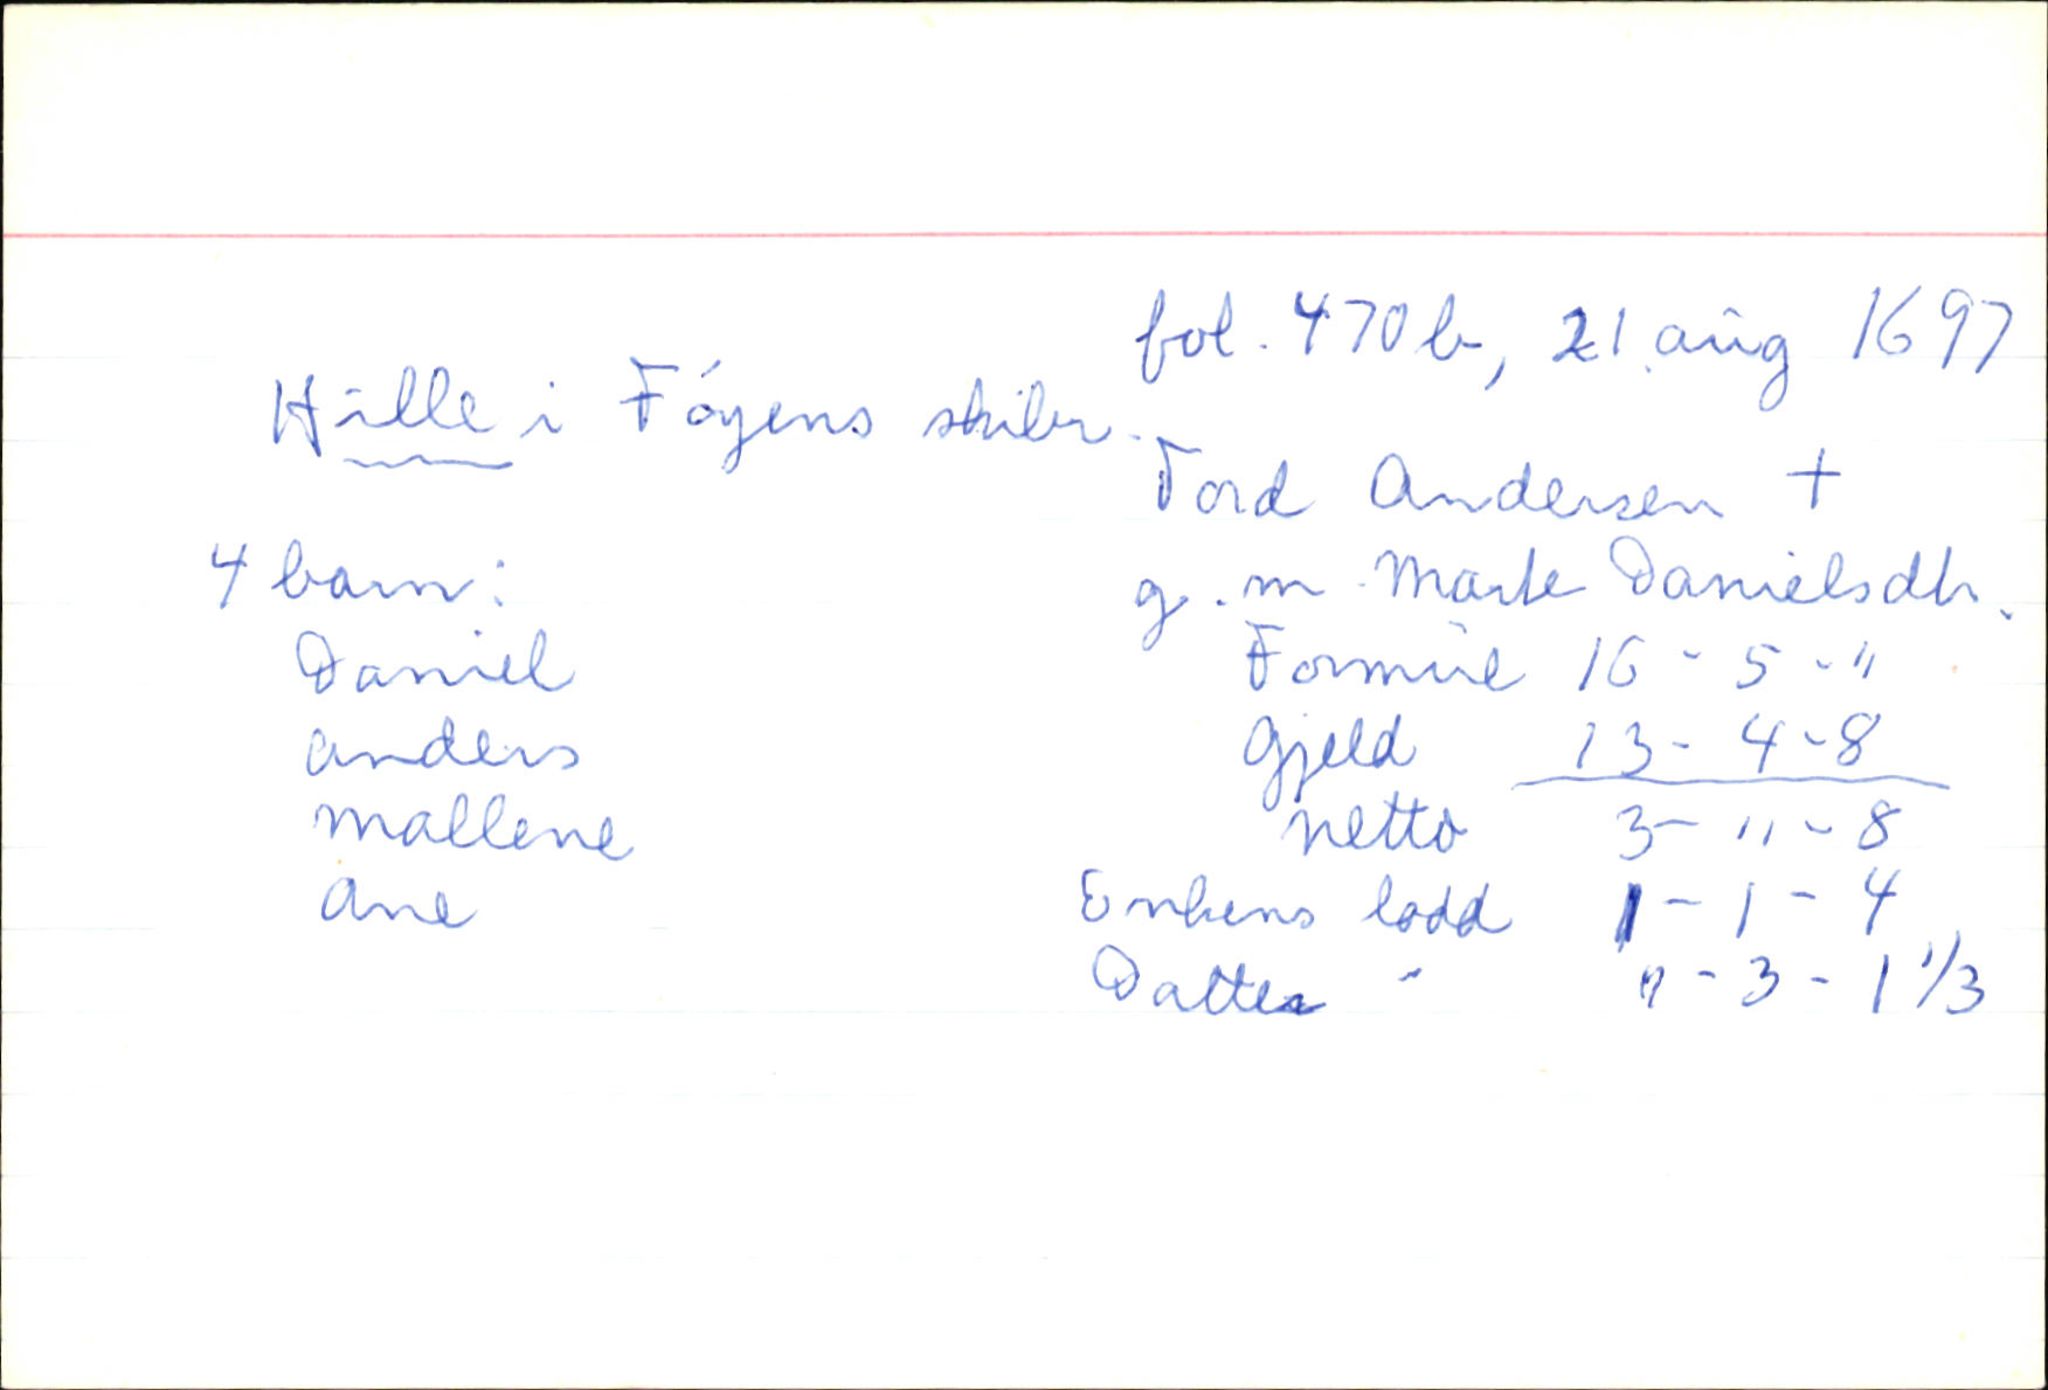 fol. 470 b, 21. aug 1697
Hille i Föyens skibr.
Tord Andersen +
g.m. Marte Danielsdtr.
4 barn:
Daniel
Anders
Mallene
Ane
Formue 16 - 5 - "
Gjeld 13 - 4 - 8
Netto 3 - " - 8
Enkens lodd 1 - 1 - 4
Datter " " - 3 - 1 1/3